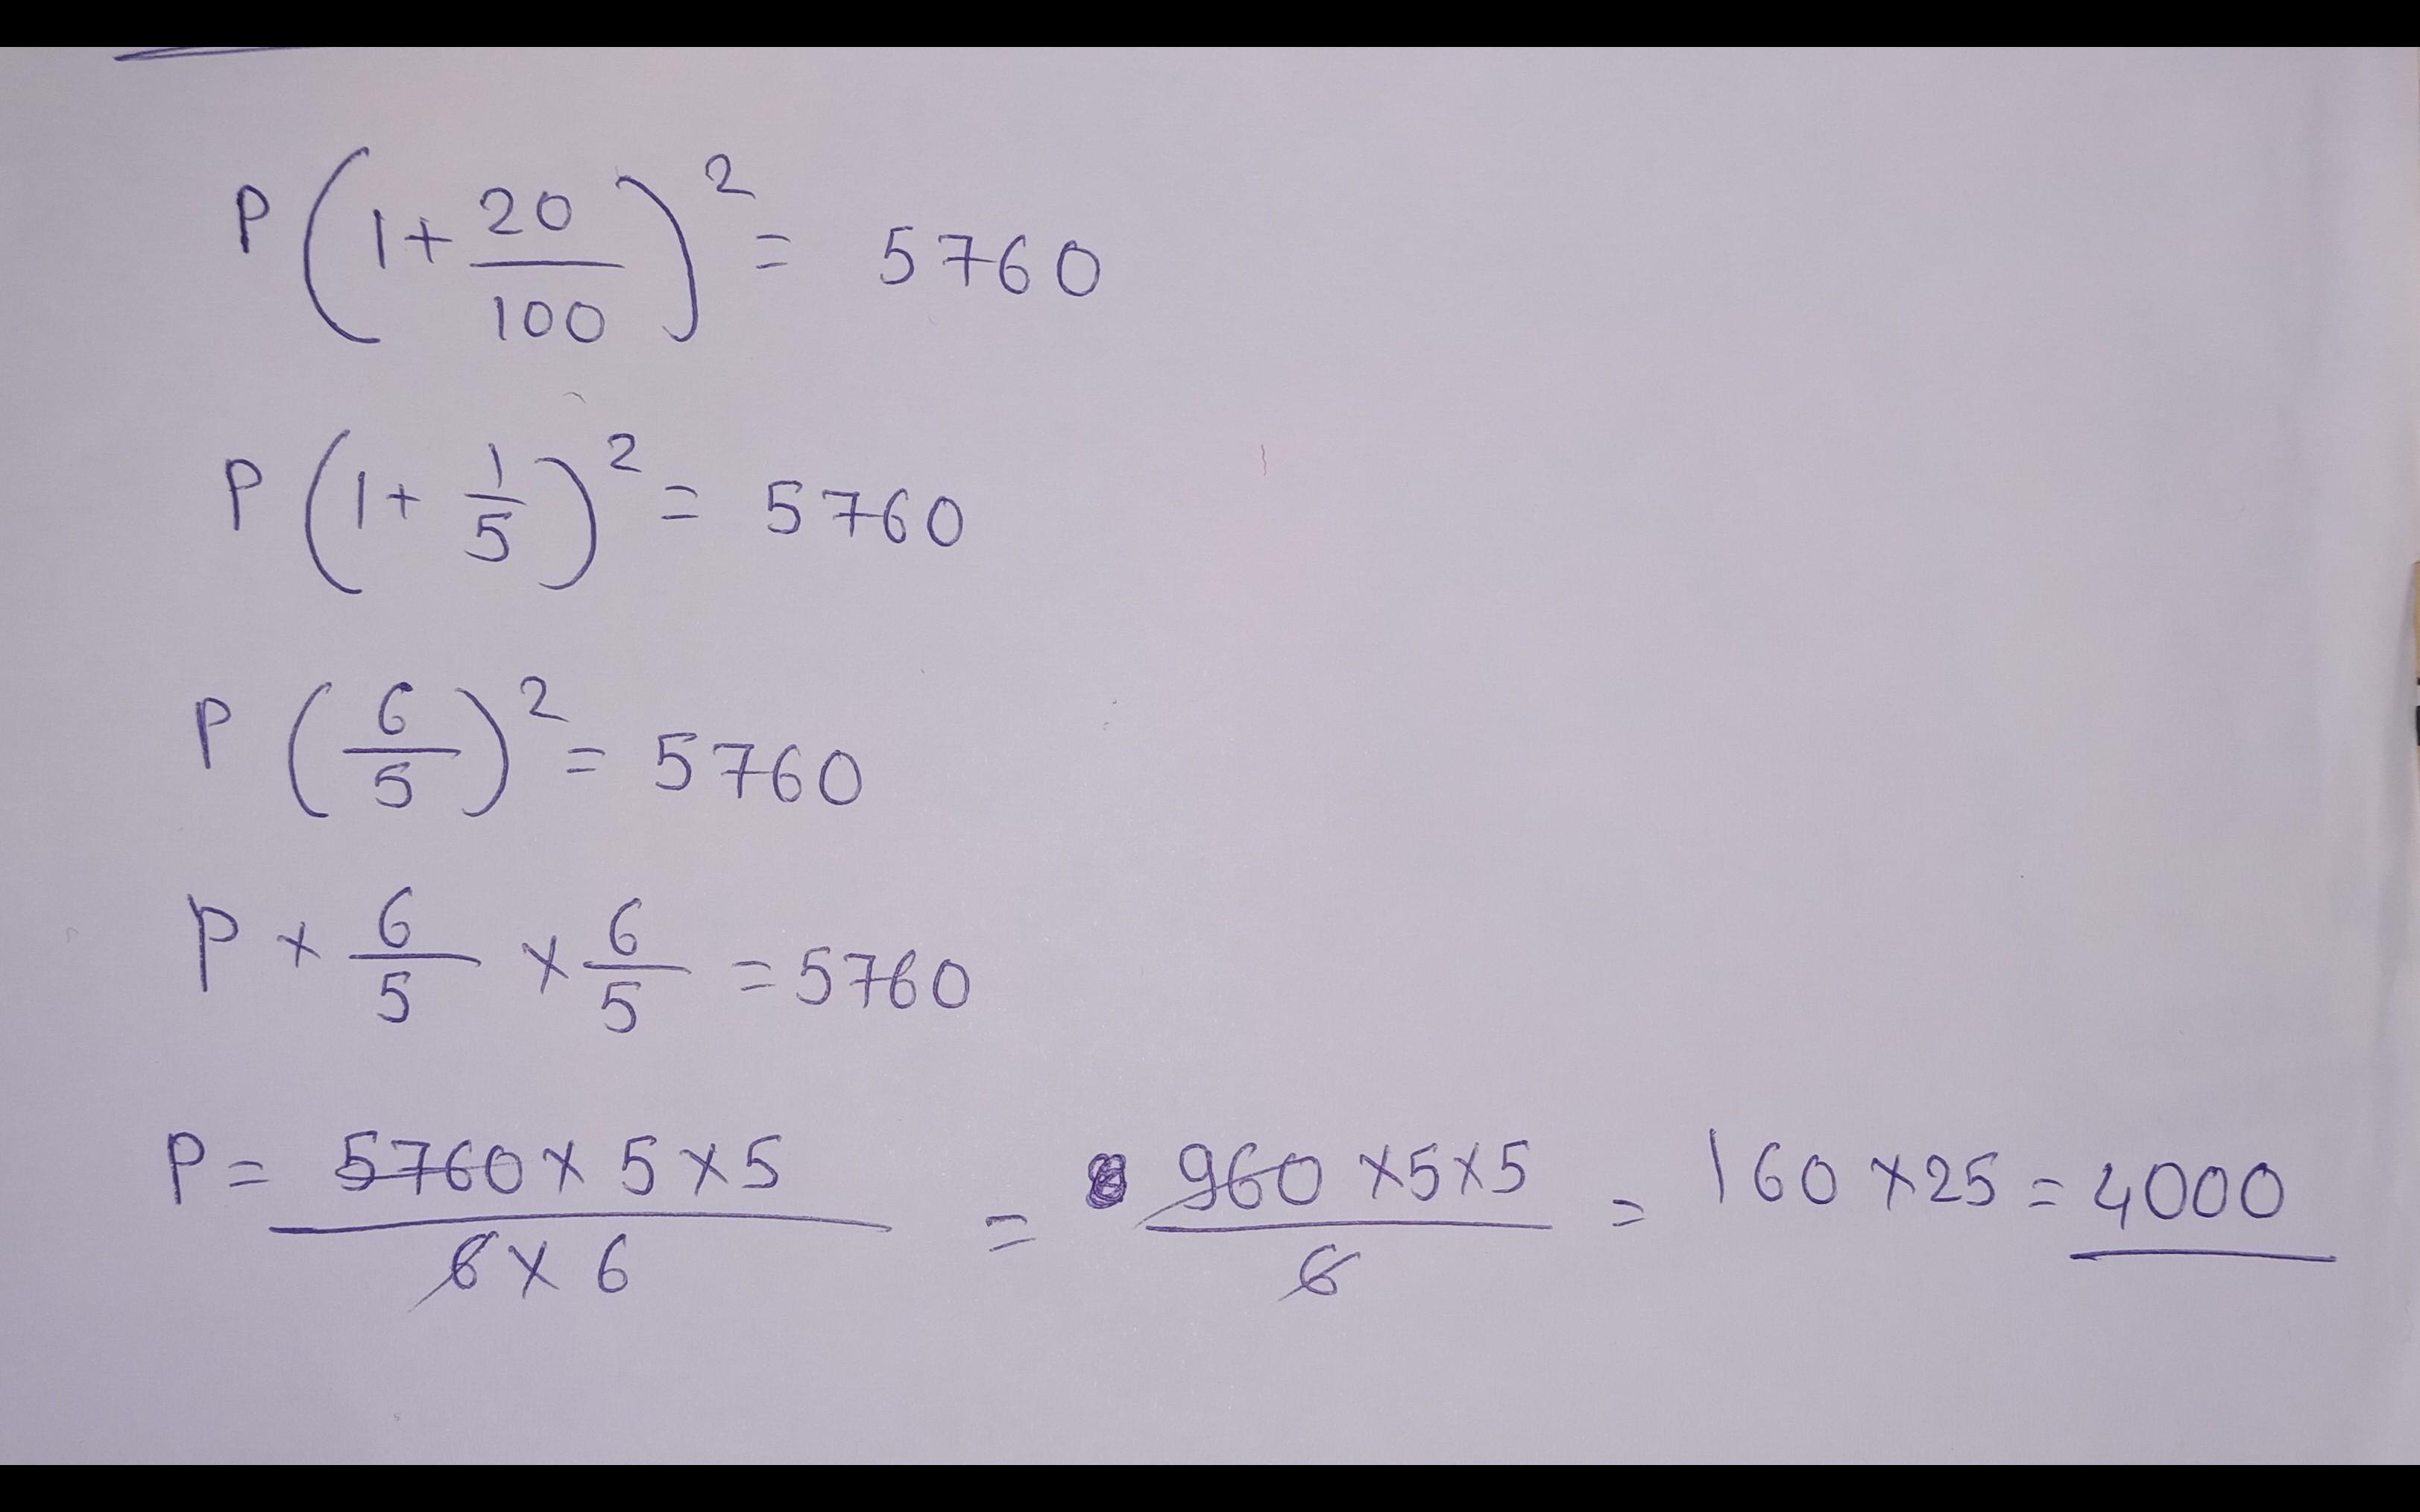 P(1+20/100)² = 5760
P(1+1/5)² = 5760
P(6/5)² = 5760
P × 6/5 × 6/5 = 5760
P = 5760×5×5/6×6 = 960×5×5/6 = 160×25 = 4000